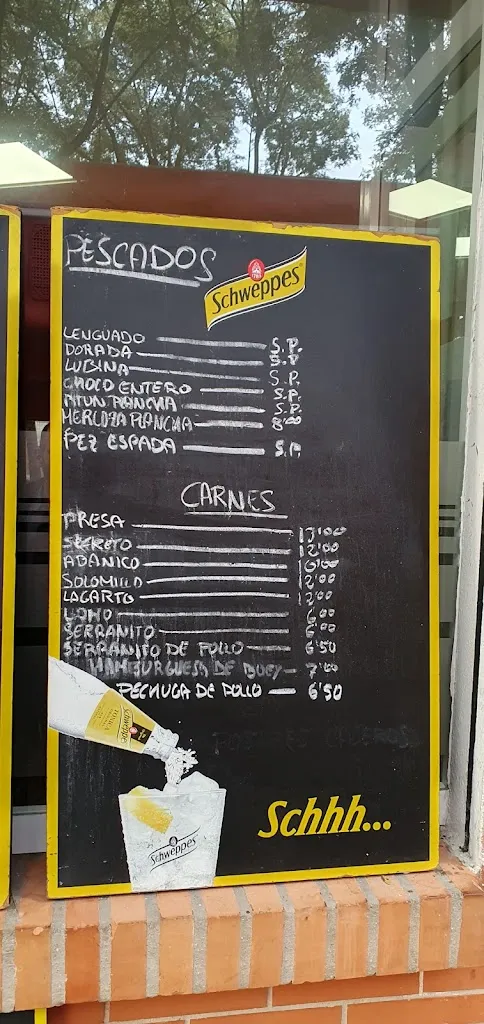 PESCADOS
Schweppes
LENGUADO S.P.
DORADA S.P
LUBINA S.P.
CHOCO ENTERO S.P.
ATUN PLANCHA S.P.
MERLUZA PLANCHA 8'00
PEZ ESPADA S.P.
CARNES
PRESA 13'00
SECRETO 12'00
ABANICO 10'00
SOLOMILLO 12'00
LAGARTO 12'00
LOMO 6'00
SERRANITO 6'00
SERRANITO DE POLLO 6'50
HAMBURGUESA DE BUEY 7'00
PECHUGA DE POLLO 6'50
Schweppes
Schhh...
Schweppes